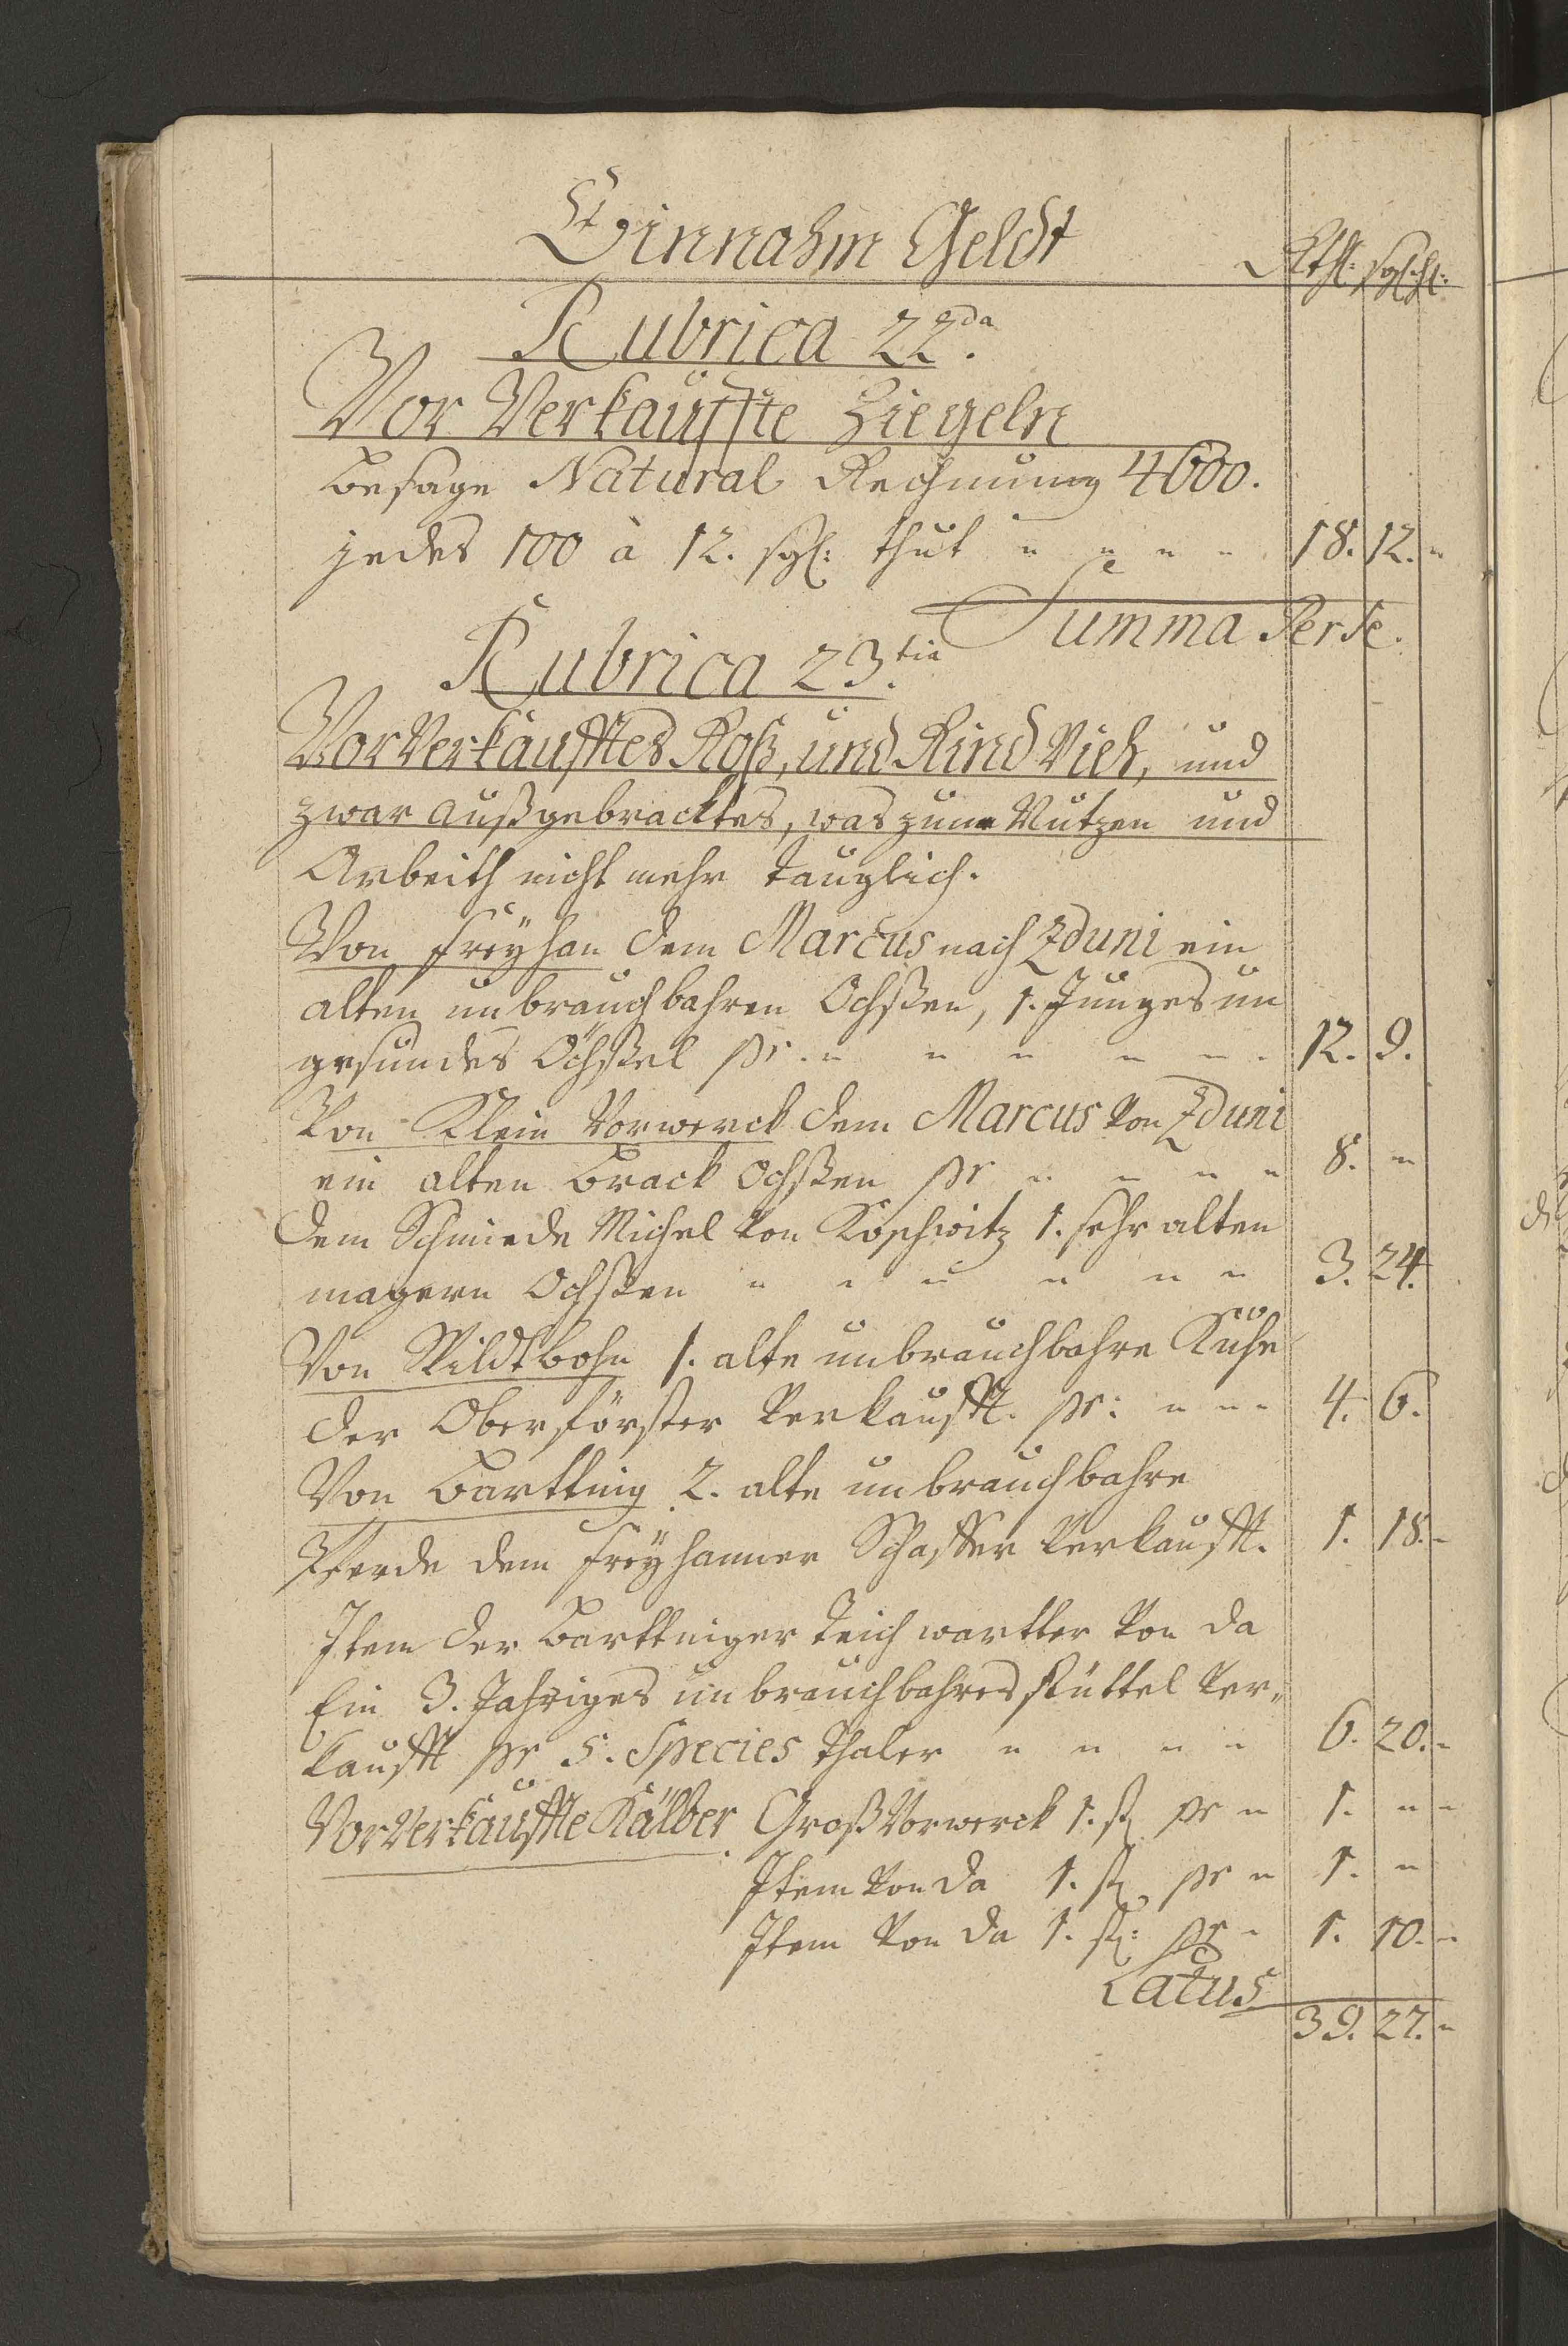 Einnahm Geldt
Rthl: sgl: hl:
Rubrica 22da.
Vor Verkauffte Ziegeln
besage Natural Rechnung 4600.
jedes 100 à 12. sgl: thut " " " " 18. 12. "
Summa Per se.
Rubrica 23.tia
Vor Verkaufftes Roß, und Rind Vieh, und
zwar außgebracktes, was zum Nutzen und
Arbeith nicht mehr tauglich.
Von Freyhan dem Marcus nach Zduni ein
alten unbrauchbahren Ochßen, 1. Junges un
gesundes Öchßel pr. " " " " " 12. 9.
Von Klein Vorwerck dem Marcus von Zduni
ein alten Brack Ochßen pr " " " " 8. "
Dem Schmiede Michel von Koschwitz 1. sehr alten
magern Ochßen " " " " " " 3. 24.
Von Wildtbahn 1. alte unbrauchbahre Kuhe
der Oberförster verkaufft. pr: " " " 4. 6.
Von Bartnig 2. alte unbrauchbahre
Pferde dem Freyhanner Schaffer verkaufft. 1. 18. "
Item der Bartniger Teich wartter von da
Ein 3. Jahriges unbrauchbahres stuttel ver„
kaufft pr 5. Species thaler " " " " 6. 20. "
Vor Verkauffte Kälber. Groß Vorwerck 1. st. pr " 1. " "
Item von da 1. st. pr " 1. "
Item von da 1. st: pr " 1. 10. "
Latus
39. 27. "